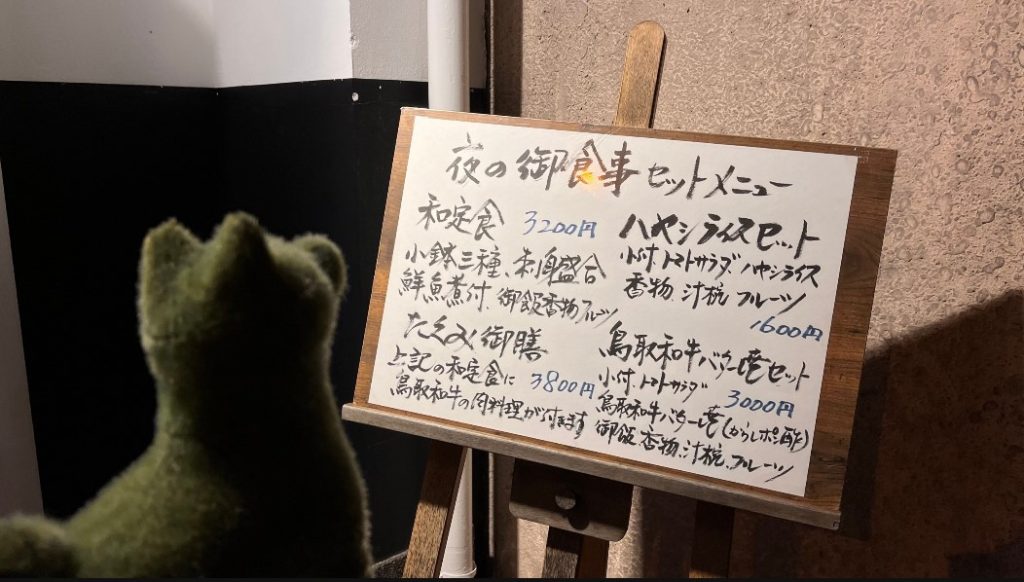 夜の御食事セットメニュー
和定食 3200円
小鉢三種、刺身盛合
鮮魚煮付、御飯香物フルーツ
たくみ御膳
上記の和定食に 3800円
鳥取和牛の肉料理が付きます
ハヤシライスセット
小付、トマトサラダ、ハヤシライス
香物、汁椀、フルーツ
1600円
鳥取和牛バター焼セット
小付、トマトサラダ 3000円
鳥取和牛バター焼(からしポン酢)
御飯、香物、汁椀、フルーツ